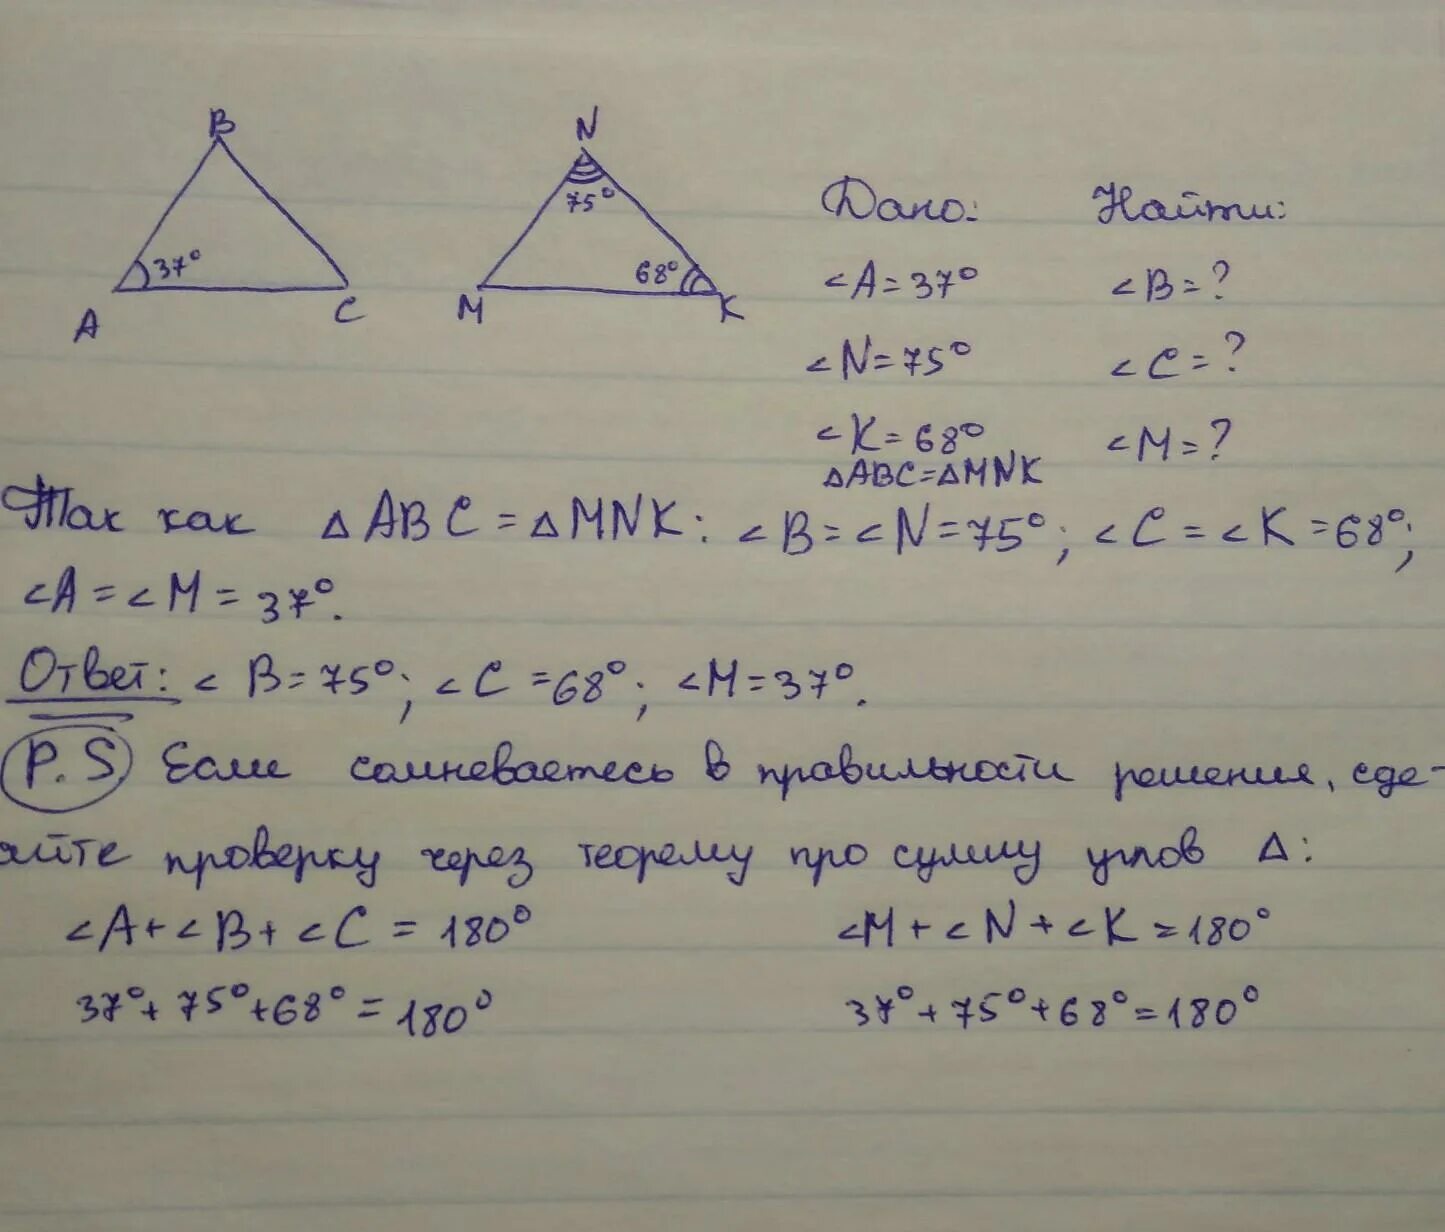 B
N
37°
75°
68°
A
C
M
K
Дано: Найти:
∠A=37° ∠B=?
∠N=75° ∠C=?
∠K=68° ∠M=?
△ABC=△MNK
Так как △ABC=△MNK: ∠B=∠N=75°; ∠C=∠K=68°;
∠A=∠M=37°.
Ответ: ∠B=75°; ∠C=68°; ∠M=37°.
P.S Если сомневаетесь в правильности решения, сде-
лайте проверку через теорему про сумму углов △:
∠A+∠B+∠C=180° ∠M+∠N+∠K=180°
37°+75°+68°=180° 37°+75°+68°=180°